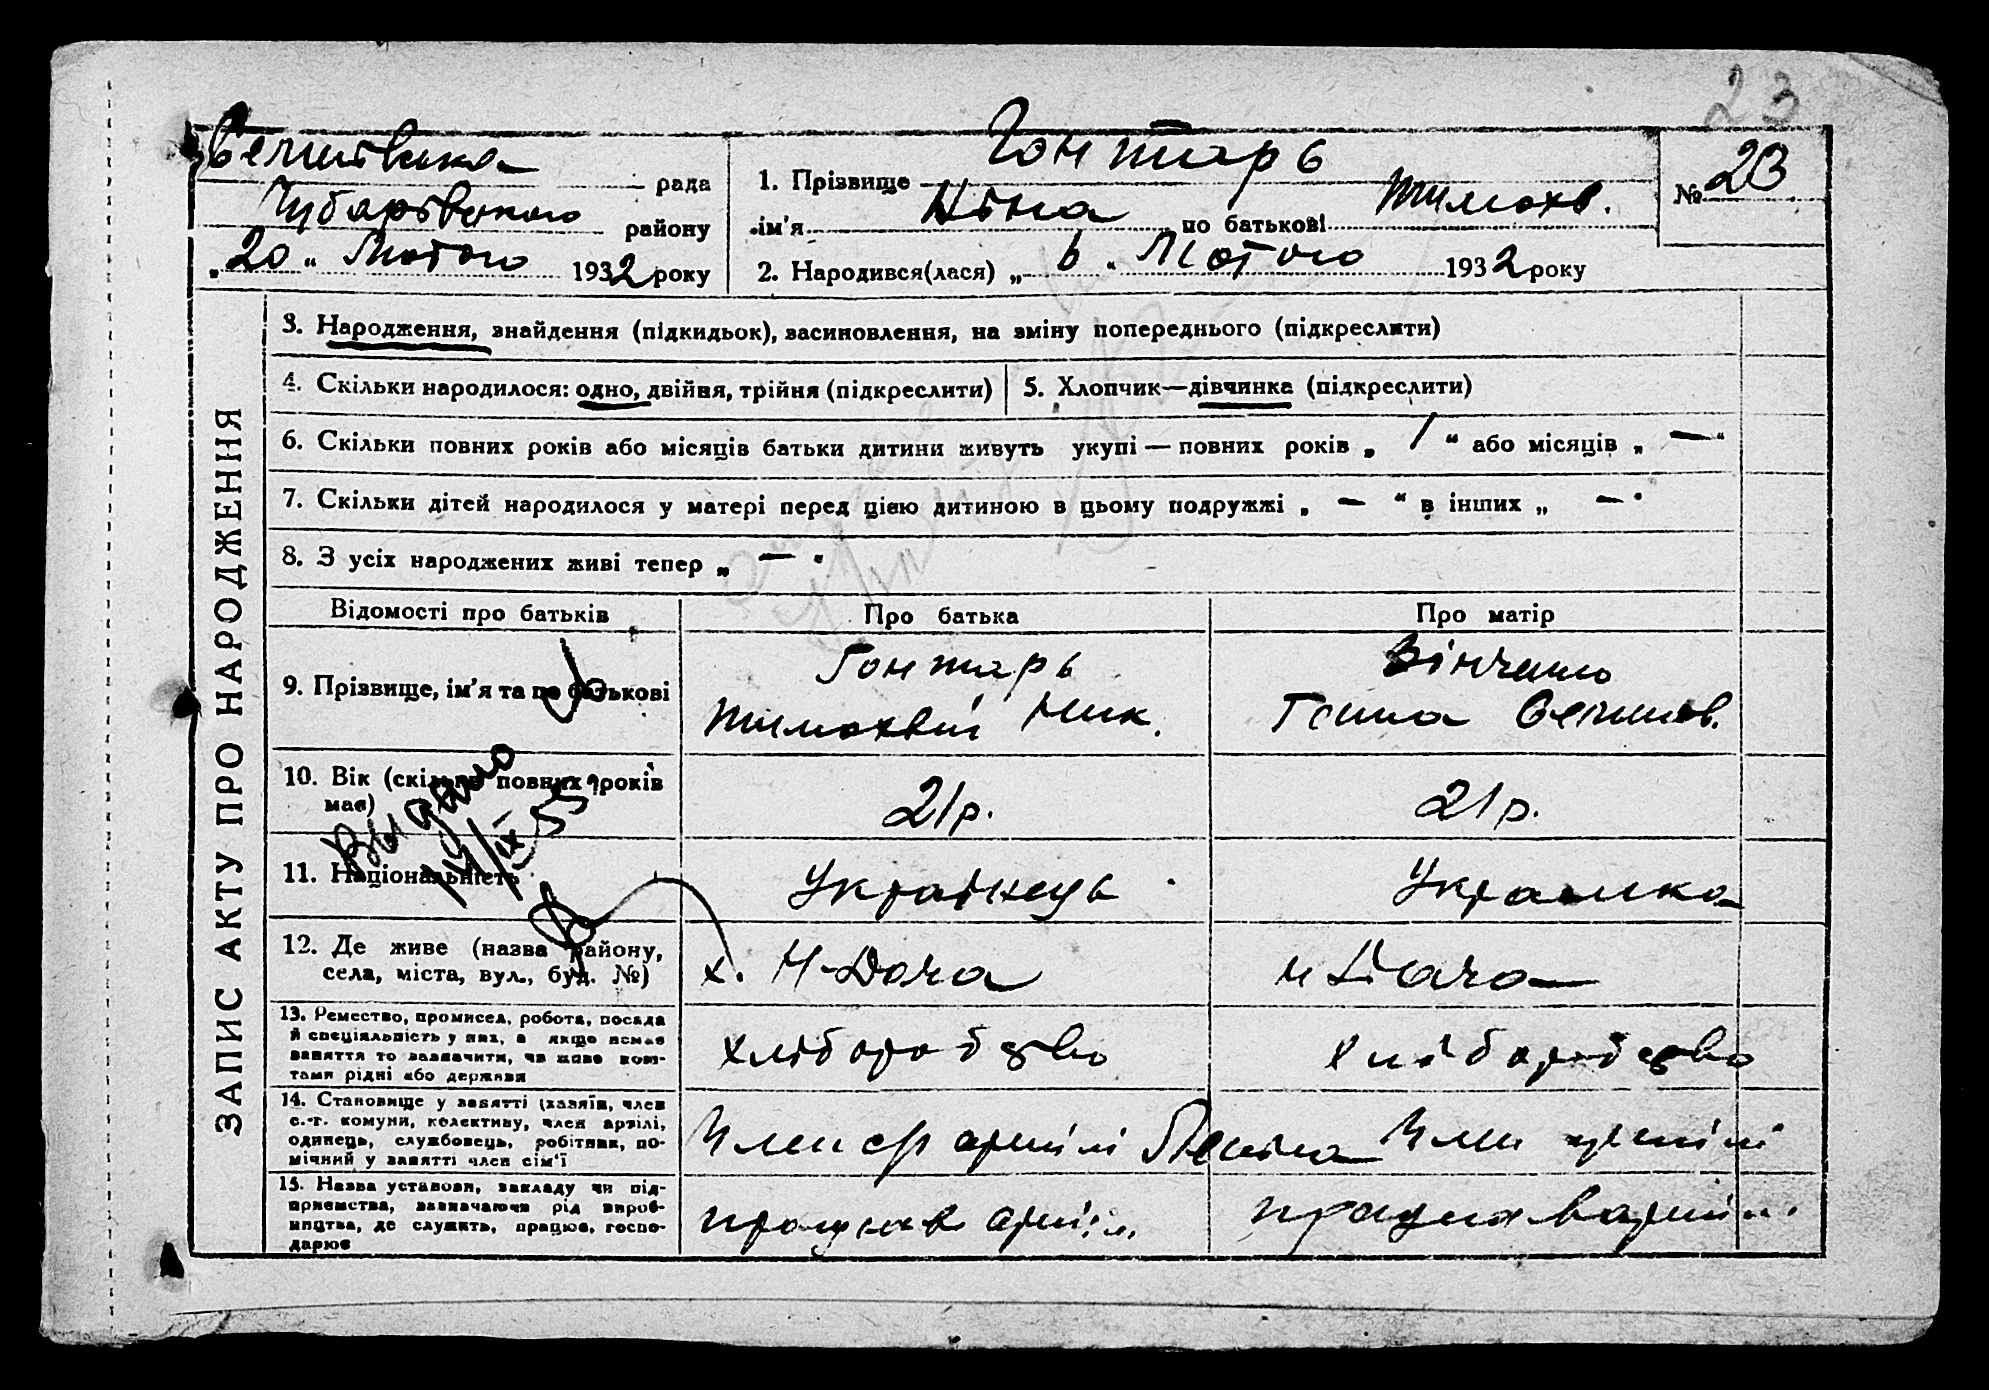 23
рада
Чубарівського району
„20“ Лютого 1932 року
1. Прізвище Гонтарь
ім'я Ніна по батькові Тимохв.
2. Народився(лася) „6“ Лютого 1932 року
№ 23
ЗАПИС АКТУ ПРО НАРОДЖЕННЯ
3. Народження, знайдення (підкидьок), засиновлення, на зміну попереднього (підкреслити)
4. Скільки народилося: одно, двійня, трійня (підкреслити)
5. Хлопчик—дівчинка (підкреслити)
6. Скільки повних років або місяців батьки дитини живуть укупі — повних років „ 1 “ або місяців „ — “
7. Скільки дітей народилося у матері перед цією дитиною в цьому подружжі „ — “ в інших „ — “
8. З усіх народжених живі тепер „ — “
Відомості про батьків
Про батька
Про матір
9. Прізвище, ім'я та по батькові
Гонтарь
Тимохвій Ник.
Ганна
10. Вік (скільки повних років
має)
21 р.
21 р.
Выдано
11. Національність
Українець
Украинка
12. Де живе (назва району,
села, міста, вул., буд. №)
х. Н-Дача
н Дача
13. Ремество, промисел, робота, посада
й спеціяльність у них, а якщо немає
заняття то зазначити, чи живе кош-
тами рідні або держави
хліборобство
хліборобство
14. Становище у занятті (хазяїн, член
с.-г. комуни, колективу, член артілі,
одинець, службовець, робітник, по-
мічний у занятті член сім'ї
Член артілі Леніна
Член артілі
15. Назва установи, закладу чи під-
приємства, зазначаючи рід вироб-
ництва, де служить, працює, госпо-
дарює
працює в артілі
працює в артілі